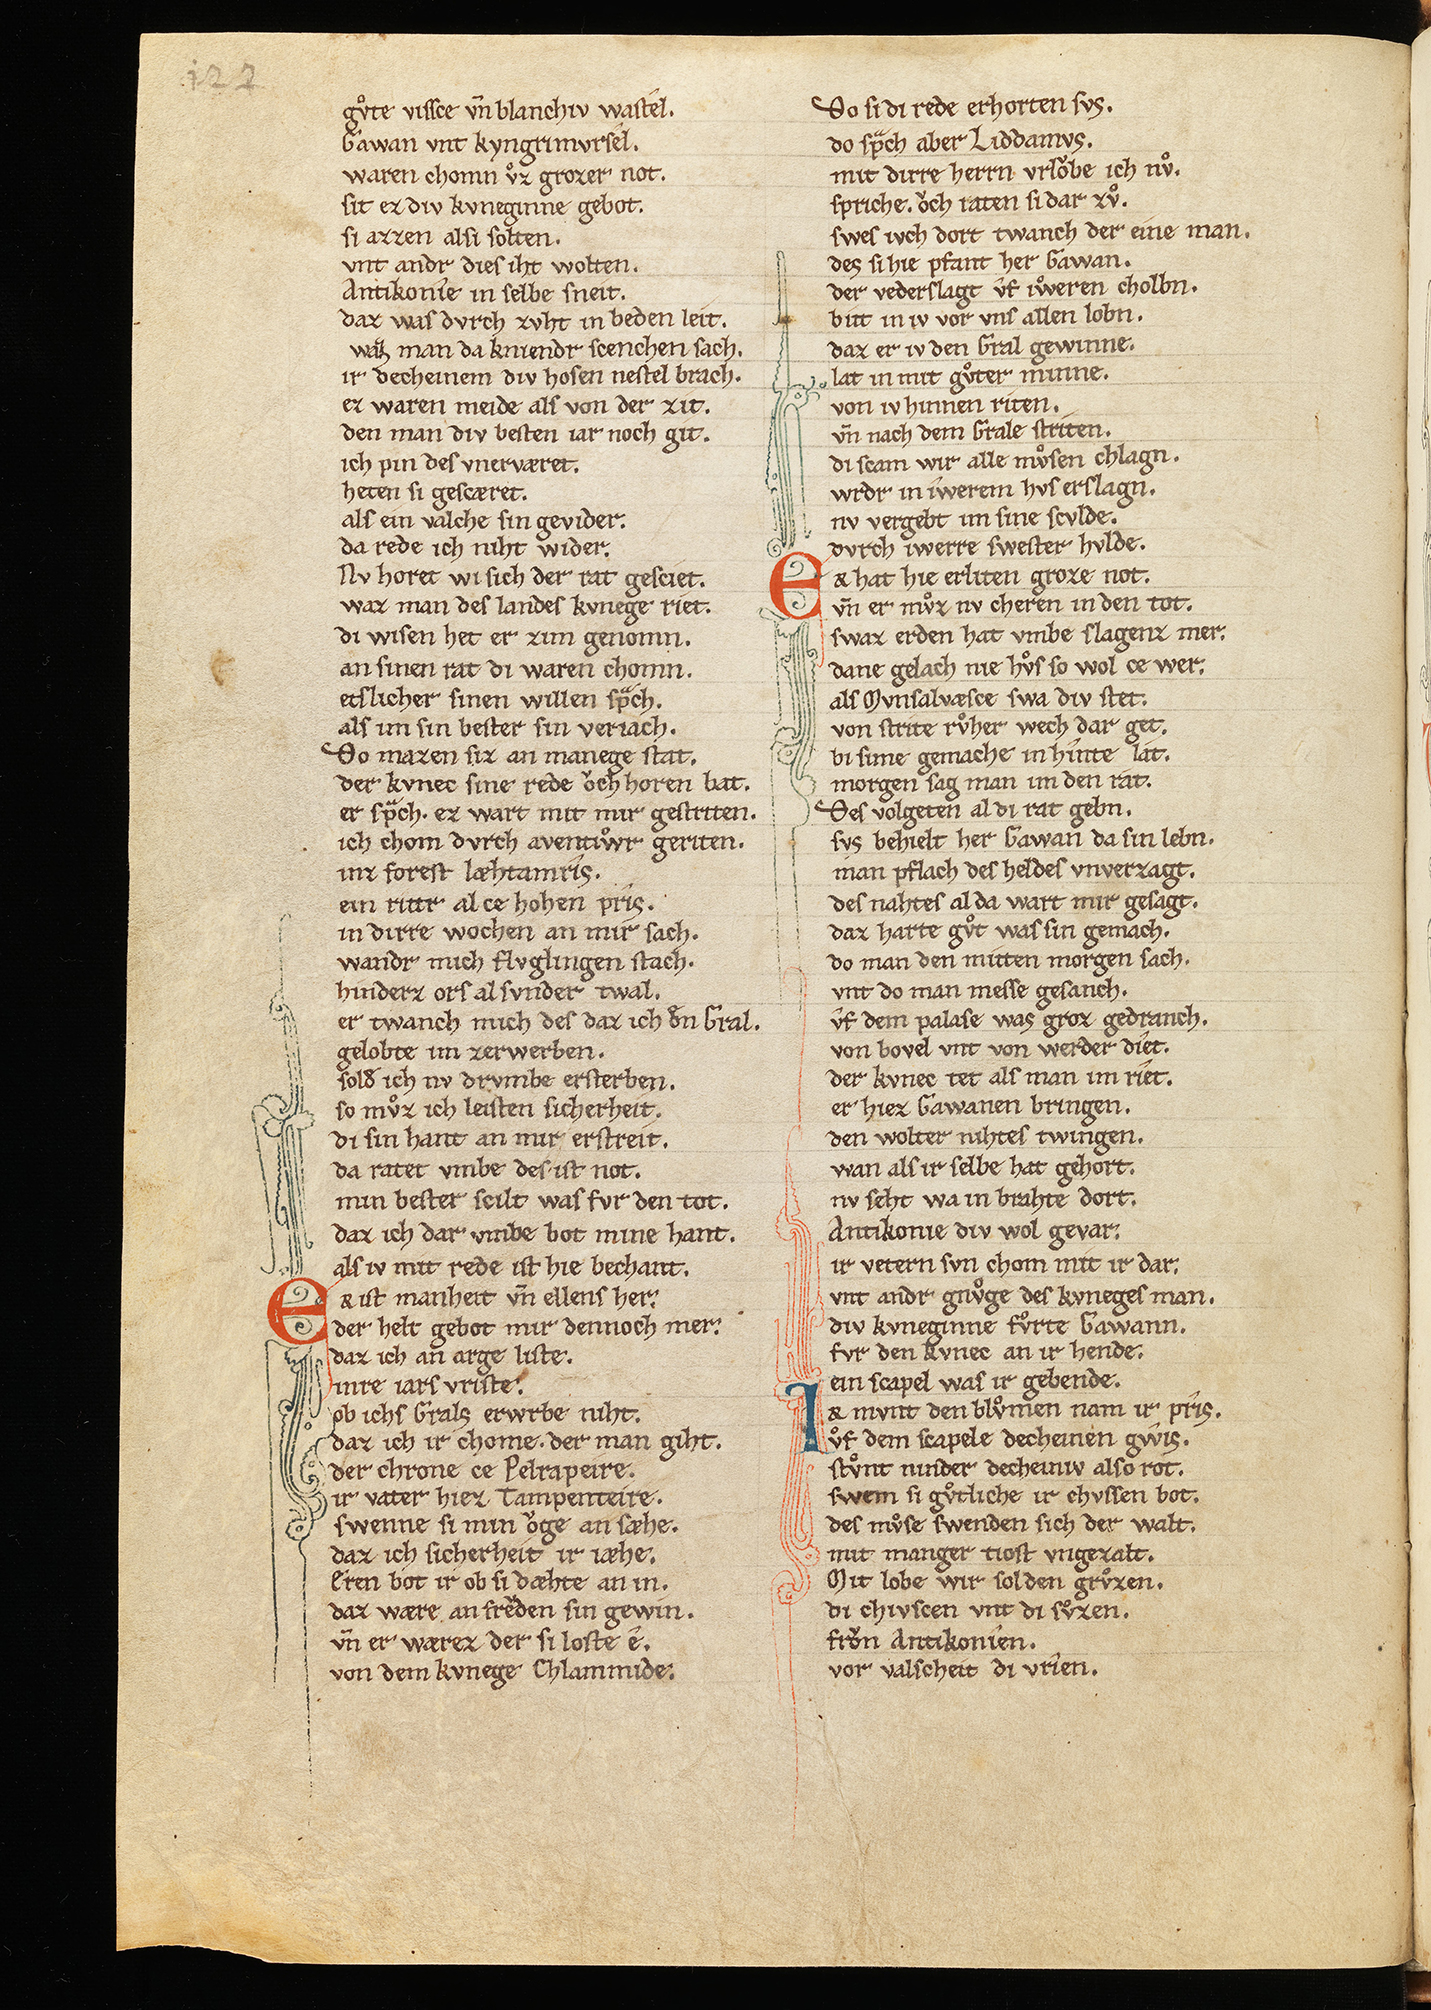 122
gůte vissce vn̄ blanchiv wastel.
Gawan vnt kyngrimvrsel.
waren chomn v̊z grozer not.
sit ez div kvneginne gebot.
si azzen alsi solten.
vnt andr dies iht wolten.
Antikonîe in selbe sneit.
daz was dvrch zvht in beden leit.
man da kniendr scenchen sach.
ir decheinem div hosen nestel brach.
ez waren meide als von der zit.
den man div besten iar noch git.
ich pin des vnerværet.
heten si gescæret.
als ein valche sin gevider.
da rede ich niht wider.
Nv horet wi sich der rat gesciet.
waz man des landes kvnege riet.
di wisen het er zim genomn.
an sinen rat di waren chomn.
etslicher sinen willen spͣch.
als im sin bester sin veriach.
Do mazen siz an manege stat.
der kvnec sine rede ǒch horen bat.
er spͣch. ez wart mit mir gestriten.
ich chom dvrch aventiv̊r geriten.
inz forest læhtamrîs.
ein rittr al ce hohen prîs.
in dirre wochen an mir sach.
wandr mich flvglingen stach.
hinderz ors al svnder twal.
er twanch mich des daz ich dn̄ Gral.
gelobte im zerwerben.
sold ich nv drvmbe ersterben.
so mv̊z ich leisten sicherheit.
di sin hant an mir erstreit.
da ratet vmbe des ist not.
min bester scilt was fvr den tot.
daz ich dar vmbe bot mine hant.
als iv mit rede ist hie bechant.
Er ist manheit vn̄ ellens her.
der helt gebot mir dennoch mer.
daz ich an arge liste.
inre iars vriste.
ob ichs Grals erwrbe niht.
daz ich ir chome. der man giht.
der chrone ce Pelrapeire.
ir vater hiez Tampenteire.
swenne si min ǒge an sæhe.
daz ich sicherheit ir iæhe.
Eren bot ir ob si dæhte an in.
daz wære an frěden sin gewin.
vn̄ er wærez der si loste ê.
von dem kvnege Chlammide.
Do si di rede erhorten svs.
do spͣch aber Liddamvs.
mit dirre herrn vrlǒbe ich nv̊.
spriche. ǒch raten si dar zv̊.
swes ivch dort twanch der eine man.
des si hie pfant her Gawan.
der vederslagt v̂f iv̊weren cholbn.
bitt in iv vor vns allen lobn.
daz er iv den Gral gewinne.
lat in mit gůter minne.
von iv hinnen riten.
vn̄ nach dem Grale striten.
di scam wir alle mv̊sen chlagn.
wrdr in iwerem hvs erslagn.
nv vergebt im sine scvlde.
dvrch iwerre swester hvlde.
Er hat hie erliten groze not.
vn̄ er mv̊z nv cheren in den tot.
swaz erden hat vmbe slagenz mer.
dane gelach nie hv̊s so wol ce wer.
als Mvnsalvæsce swa div stet.
von strite rv̊her wech dar get.
bi sime gemache in hinte lat.
morgen sag man im den rat.
Des volgeten al di rat gebn.
svs behielt her Gawan da sin lebn.
man pflach des heldes vnverzagt.
des nahtes al da wart mir gesagt.
daz harte gv̊t was sin gemach.
do man den mitten morgen sach.
vnt do man messe gesanch.
v̂f dem palase was groz gedranch.
von bovel vnt von werder diet.
der kvnec tet als man im riet.
er hiez Gawanen bringen.
den wolter nihtes twingen.
wan als ir selbe hat gehort.
nv seht wa in brahte dort.
Antikonie div wol gevar.
ir vetern svn chom mit ir dar.
vnt andr gnv̊ge des kvneges man.
div kvneginne fv̊rte Gawann.
fvr den kvnec an ir hende.
ein scapel was ir gebende.
Ir mvnt den blv̊men nam ir prîs.
v̊f dem scapele decheinen gwîs.
stv̊nt ninder decheiniv also rot.
swem si gv̊tliche ir chvssen bot.
des mv̊se swenden sich der walt.
mit manger tiost vngezalt.
Mit lobe wir solden grv̊zen.
di chivscen vnt di sv̊zen.
frǒn Antikonîen.
vor valscheit di vrîen.